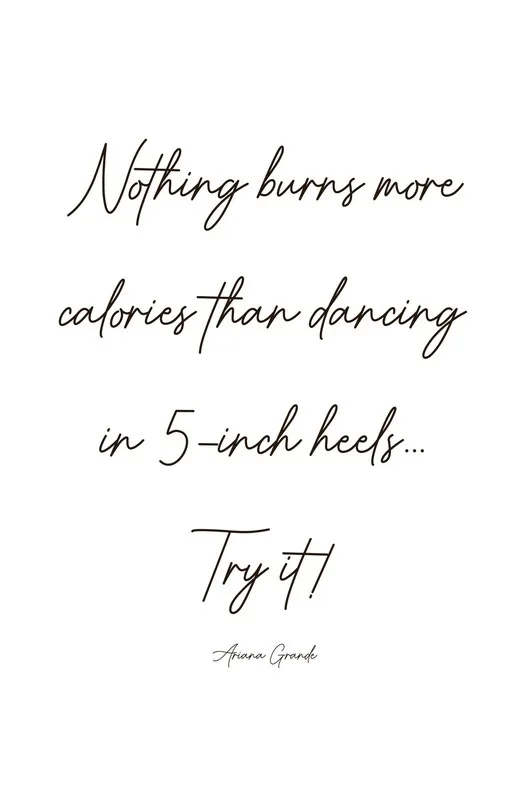 Nothing burns more
calories than dancing
in 5-inch heels...
Try it!
Ariana Grande